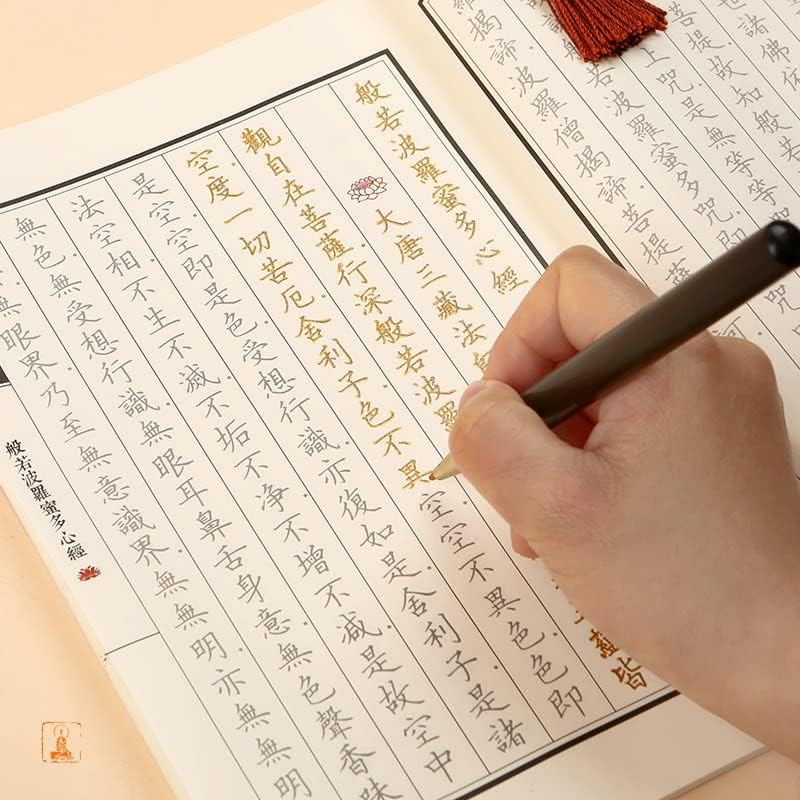 世諸佛依
菩提。故知般若
上咒。是無等等咒
若波羅蜜多咒。即
羅揭諦。波羅僧揭諦。菩提薩
般若波羅蜜多心經
大唐三藏法
觀自在菩薩。行深般若波羅 蘊皆
空。度一切苦厄。舍利子。色不異空。空不異色。色即
是空。空即是色。受想行識。亦復如是。舍利子。是諸
法空相。不生不滅。不垢不净。不增不减。是故空中
無色。無受想行識。無眼耳鼻舌身意。無色聲香味
無眼界。乃至無意識界。無無明。亦無無明
般若波羅蜜多心經